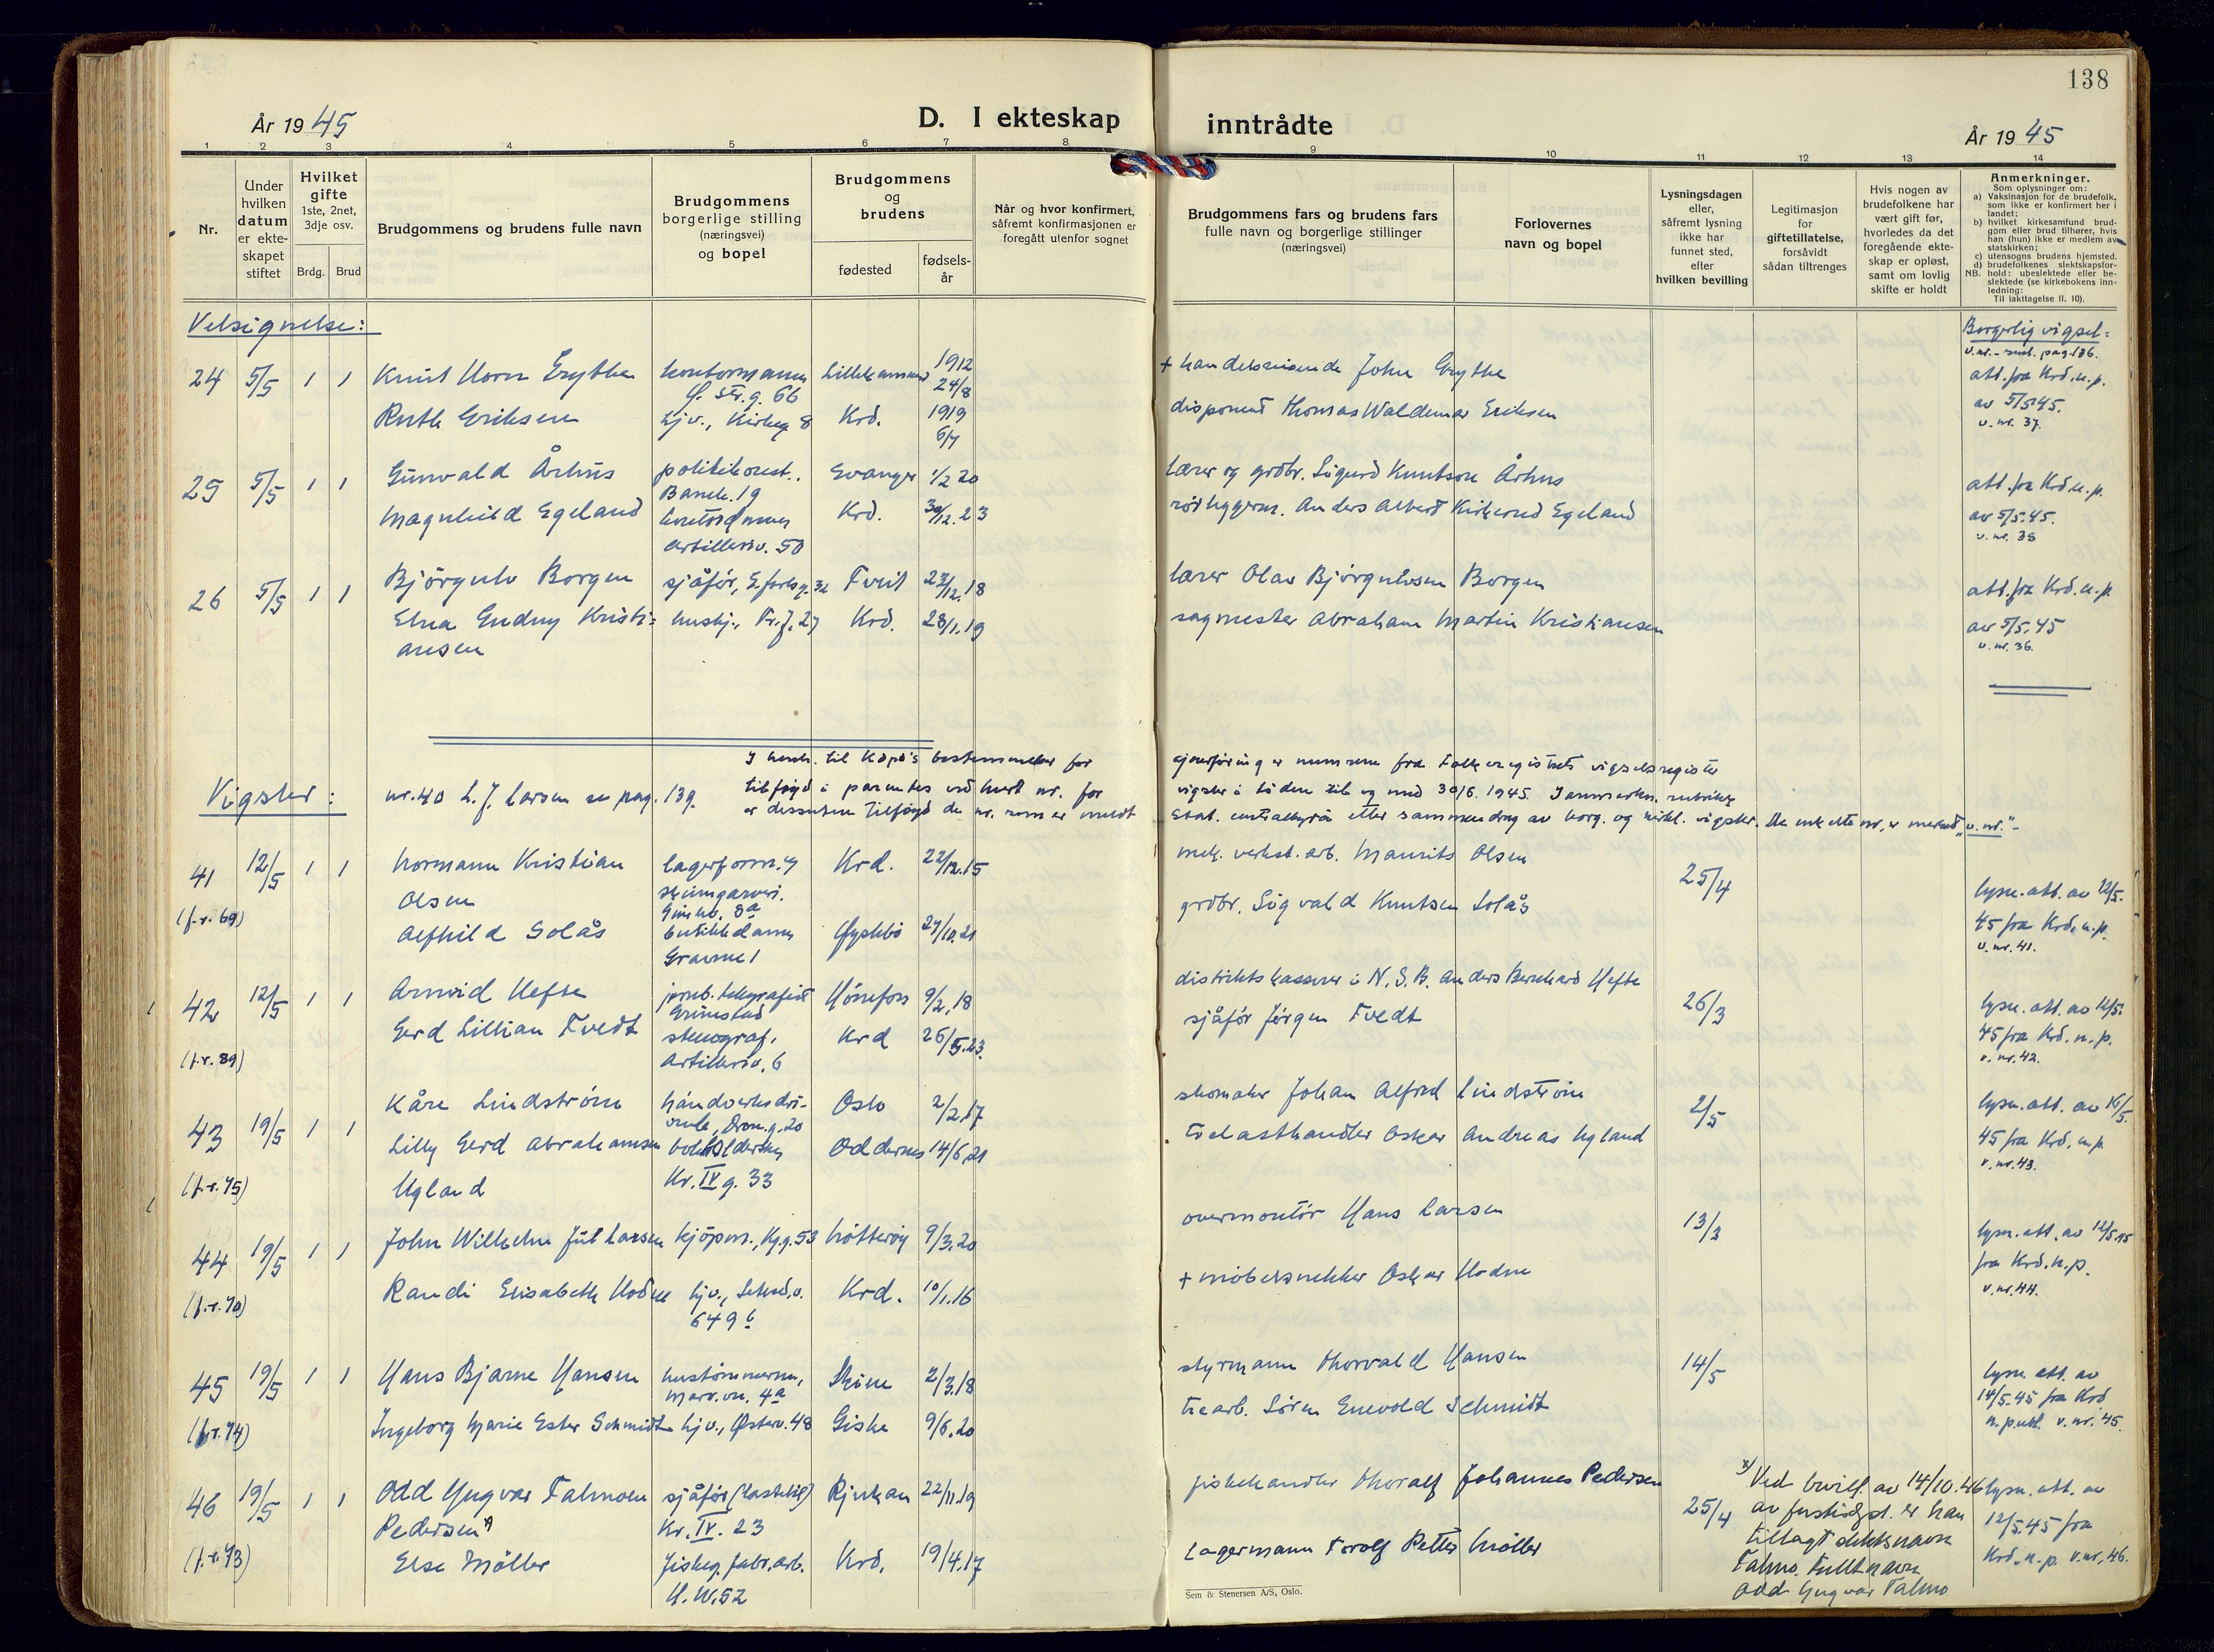 138
År 1945
D. I ekteskap
inntrådte
År 1945
1 2 3 4 5 6 7 8 9 10 11 12 13 14
Nr.
Under
hvilken
datum
er ekte-
skapet
stiftet
Hvilket
gifte
1ste, 2net,
3dje osv.
Brdg. Brud
Brudgommens og brudens fulle navn
Brudgommens
borgerlige stilling
(næringsvei)
og bopel
Brudgommens
og
brudens
fødested
fødsels-
år
Når og hvor konfirmert,
såfremt konfirmasjonen er
foregått utenfor sognet
Brudgommens fars og brudens fars
fulle navn og borgerlige stillinger
(næringsvei)
Forlovernes
navn og bopel
Lysningsdagen
eller,
såfremt lysning
ikke har
funnet sted,
efter
hvilken bevilling
Legitimasjon
for
giftetillatelse,
forsåvidt
sådan tiltrenges
Hvis nogen av
brudefolkene har
vært gift før,
hvorledes da det
foregående ekte-
skap er opløst,
samt om lovlig
skifte er holdt
Anmerkninger.
Som oplysninger om:
a) Vaksinasjon for de brudefolk,
som ikke er konfirmert her i
landet;
b) hvilket kirkesamfund brud-
gom eller brud tilhører, hvis
han (hun) ikke er medlem av
statskirken;
c) utensogns brudens hjemsted.
d) brudefolkenes slektskapsfor-
NB. hold: ubeslektede eller be-
slektede (se kirkebokens inn-
ledning:
Til iakttagelse II. 10).
Velsignelse:
Borgerlig vigsel:
24 5/5 1 1 Knut Horn Grythe kontormann Lillehammer 1912 24/8 + handelsreisende John Grythe att. fra Krd. n.p.
Ø. str.g. 66
Ruth Eriksen hjv., Kirkeg 8 Krd. 1919 6/7 disponent Thomas Waldemar Eriksen av 5/5 45.
v. nr. 37.
25 5/5 1 1 Gunvald Århus politikonst. Evanger 1/2 20 lærer og grdbr. Sigurd Knutson Århus att. fra Krd. n.p.
Magnhild Egeland Krd. 30/12.23 rørleggerm. Anders Albert Kirkerud Egeland av 5/5.45.
Artilleriv. 50 v. nr. 38
26 5/5 1 1 Bjørgulv Borgen sjåfør, Tveit 23/12.18 lærer Olav Bjørgulvsen Borgen att. fra Krd. n.p.
Elna Gudny Kristi- hushj., Fr.j. 27 Krd. 28/1.19 sagmester Abraham Martin Kristiansen av 5/5.45
ansen v. nr. 36.
Vigsler: nr. 40 L. J. Larsen se pag. 139.
I henh. til Kdpd's bestemmelser for gjennføring er numrene fra Folkeregistrets vigselsregister
tilføyd i parentes ved hvert nr. for vigsler i tiden til og med 30/6. 1945. I anmerkn. rubrikk
er dessuten tilføyd de nr. som er meldt Stat. sentralbyrå etter sammendrag av borg. og kirkl. vigsler. De enkelte nr. er merket "v. nr."-
41 12/5 1 1 Normann Kristian lagerform. Krd. 22/12.15 mek. verkst. arb. Maurits Olsen 25/4 lysn. att. av 12/5.
(f.r. 69) Olsen grdbr. Sigvald Knutsen Solås 45 fra Krd. n.p.
Alfhild Solås butikkdame Øyslebø 27/10.21 v. nr. 41.
Gravene 1
42 12/5 1 1 Arnvid Hefte jernb. telegrafist Hønefoss 9/2.18 distriktskasserer i N.S.B. Anders Bernhard Hefte 26/3 lysn. att. av 12/5.
Grimstad
(f.r. 89) Gerd Lillian Tvedt stenograf. Krd 26/5.23. sjåfør Jørgen Tvedt 45 fra Krd. n.p.
Artilleriv. 6 v. nr. 42.
43 19/5 1 1 Kåre Lindstrøm håndverksdri- Oslo 2/2.17 skomaker Johan Alfred Lindstrøm 2/5 lysn. att. av 16/5.
vende, Dron.g. 20
(f.r. 75) Lilly Gerd Abrahamsen Oddernes 14/6.21 trelasthandler Oskar Andreas Ugland 45 fra Krd. n.p.
Ugland Kr. IV g. 33 v. nr. 43.
44 19/5 1 1 John Wilhelm Jul Larsen kjøpm., Kg.g. 53 Nøtterøy 9/3.20 overmontør Hans Larsen 13/3 lysn. att. av 12/5.45
(f.r. 70) Randi Elisabeth Hodne hjv., Krd. 10/1.16 + møbelsnekker Oskar Hodne fra Krd. n.p.
649 b v. nr. 44.
45 19/5 1 1 Hans Bjarne Hansen hustømmerm., Skien 2/3.18 styrmann Thorvald Hansen 14/5 lysn. att. av
Marv.vn. 4a 14/5.45 fra Krd
(f.r. 74) Ingeborg Marie Ester Schmidt hjv., Østerv. 48 Giske 9/6.20 trearb. Søren Enevold Schmidt n.p. utl. v. nr. 45.
46 19/5 1 1 Odd Yngvar Talmoen sjåfør (lastebil) Rjukan 22/11.19 fiskehandler Thoralf Johannes Pedersen 25/4 lysn. att. av
Pedersen x) Kr. IV. 23 12/5.45 fra
(f.r. 73) Else Møller fiskeg. fabr. arb. Krd. 19/4.17 Lagermann Torolf Petter Møller Krd. n.p. v. nr. 46.
H.W. 52
x) Ved bevilg. av 14/10.46
av justisdpt. er han
tillagt slektsnavn
Talmo. Fullt navn
Odd Yngvar Talmo
Sem & Stenersen A/S, Oslo.